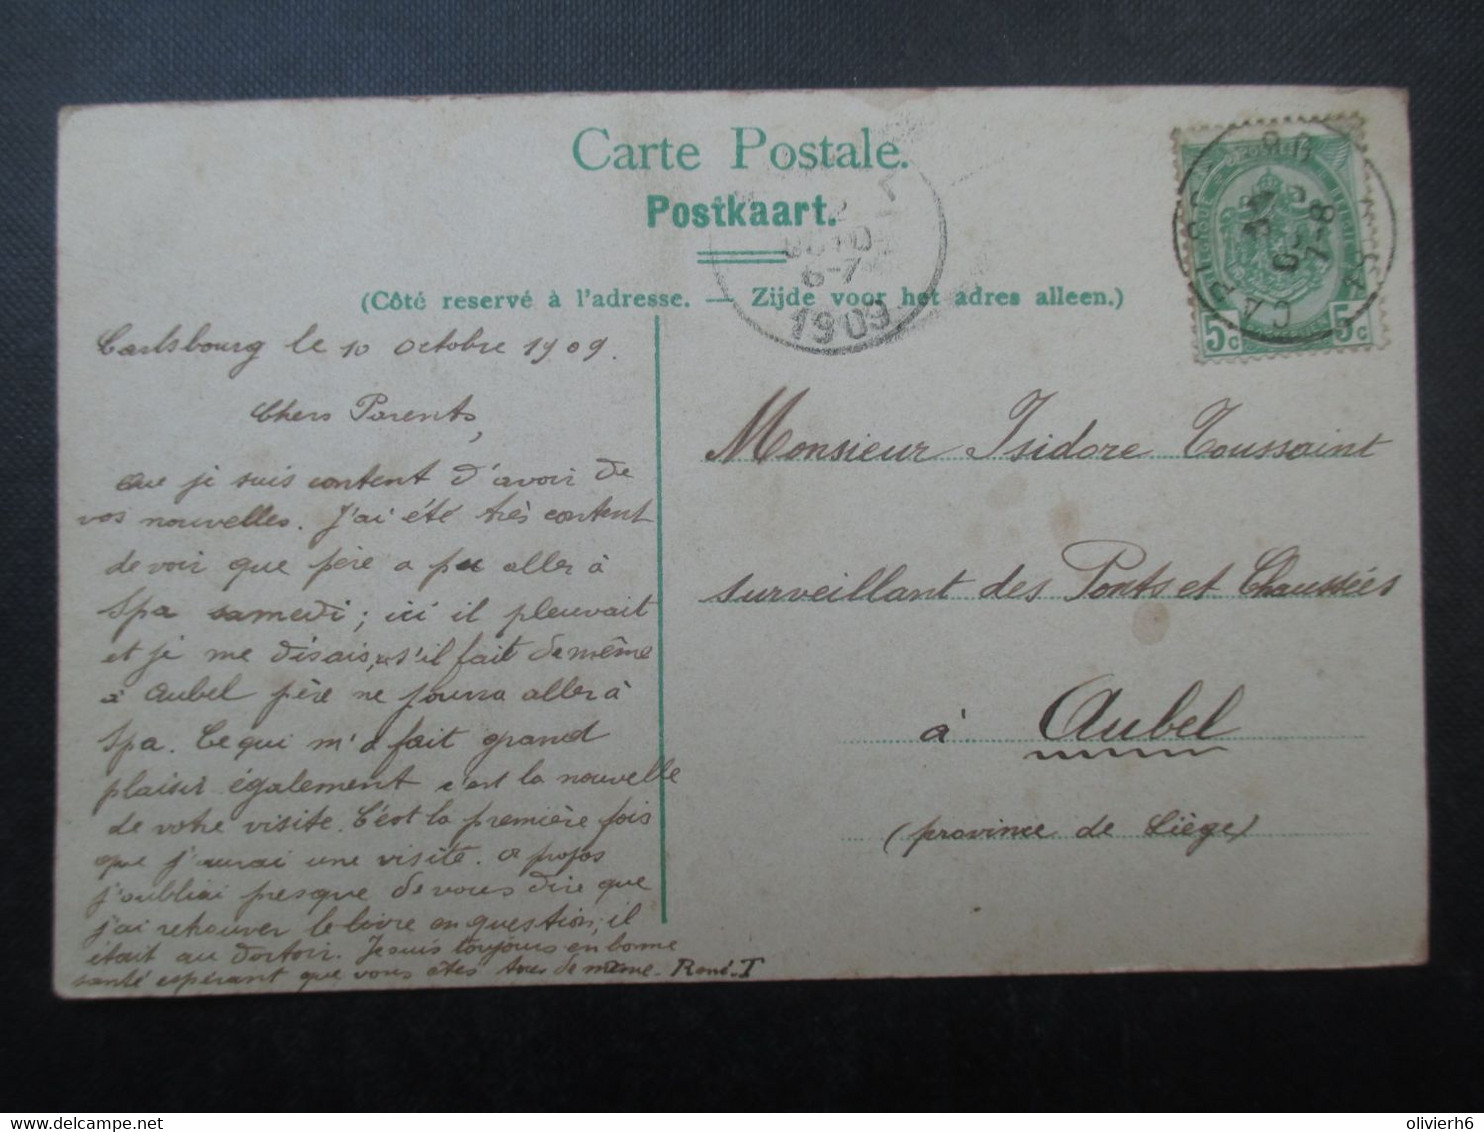 Carte Postale.
Postkaart.
(Côté reservé à l'adresse. — Zijde voor het adres alleen.)
6-7
1909
7-8
5c 5c
Carlsbourg le 10 Octobre 1909.
Chers Parents,
que je suis content d'avoir de
vos nouvelles. J'ai été très content
de voir que père a pu aller à
Spa samedi; ici il pleuvait
et je me disais, s'il fait de même
à Aubel père ne pourra aller à
Spa. Ce qui m'a fait grand
plaisir également c'est la nouvelle
de votre visite. C'est la première fois
que j'aurai une visite. A propos
j'oubliai presque de vous dire que
j'ai retrouver le livre en question; il
était au dortoir. Je suis toujours en bonne
santé espérant que vous êtes tous de même. René. T
Monsieur Isidore Toussaint
surveillant des Ponts et Chaussées
à Aubel
(province de Liège)
olivierh6